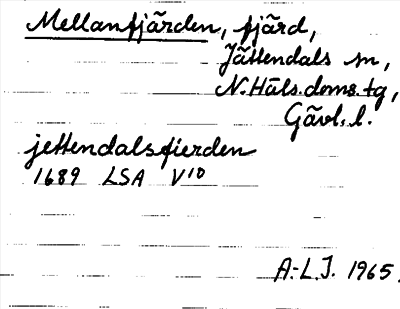 Mellanfjärden, fjärd,
Jättendals sn,
N. Häls. doms. tg,
Gävl. l.
jettendalsfierden
1689 LSA V¹⁰
A.-L.J. 1965.